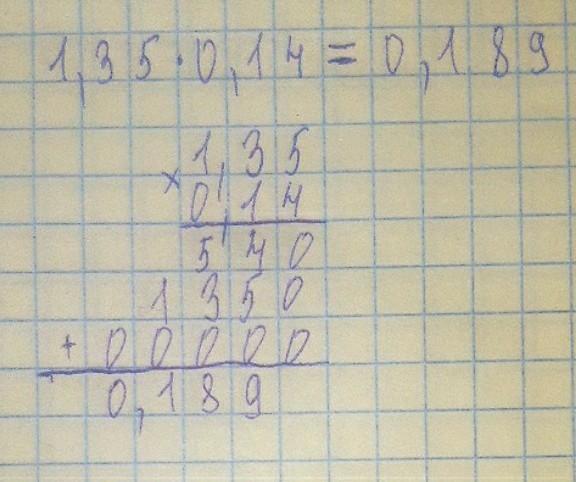 1,35·0,14=0,189
×1,35
0,14
540
1350
+00000
0,189